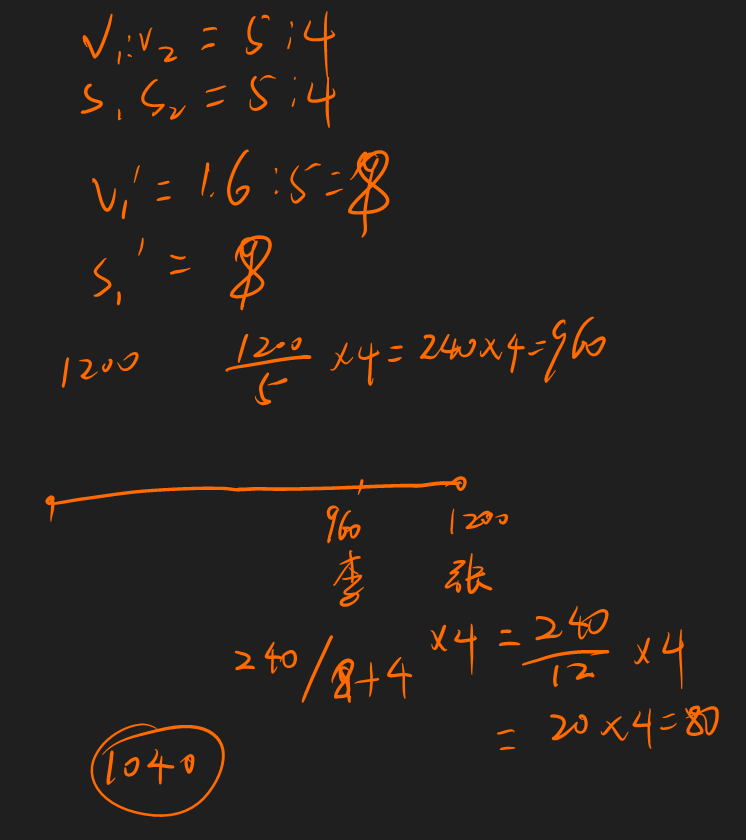 V₁:V₂ = 5:4
S₁ S₂ = 5:4
V₁' = 1.6 : 5 = 8
S₁' = 8
1200 1200/5 ×4 = 240×4 = 960
960 1200
李 張
240/8+4 ×4 = 240/12 ×4
= 20×4 = 80
1040